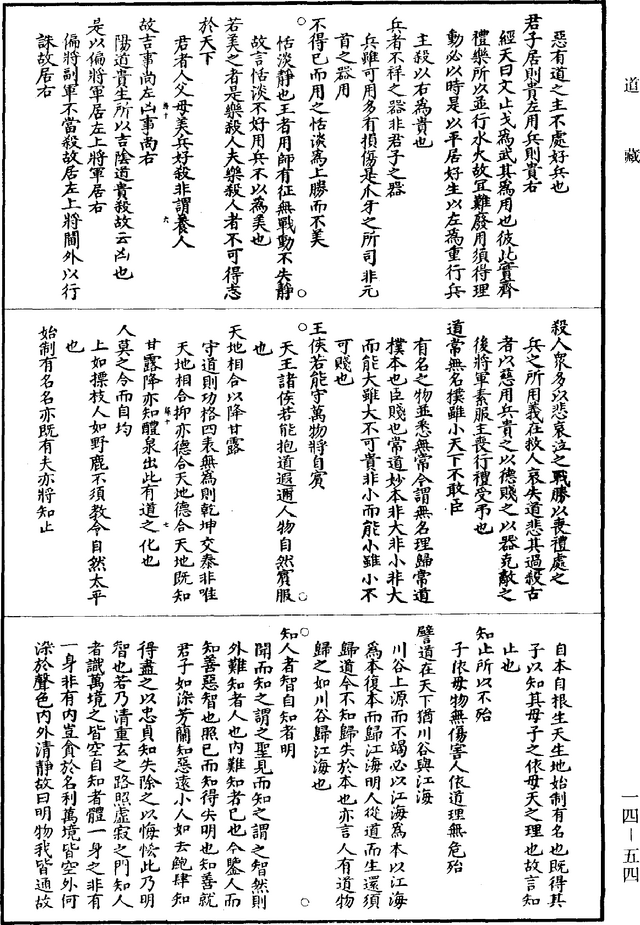 道藏
惡有道之主不處好兵也
君子居則貴左用兵則貴右
經天曰文止戈為武其為用也彼此實齊
禮樂所以並行水火故宜難廢用須得理
動必以時是以平居好生以左為重行兵
主殺以右為貴也
兵者不祥之器非君子之器
兵雖可用多有損傷是爪牙之所司非元
首之器用
不得已而用之恬淡為上勝而不美
恬淡靜也王者用師有征無戰動不失靜
故言恬淡不好用兵不以為美也
若美之者是樂殺人夫樂殺人者不可得志
於天下
君者人父母美兵好殺非謂養人
故吉事尚左凶事尚右
陽道貴生所以吉陰道貴殺故云凶也
是以偏將軍居左上將軍居右
偏將副軍不當殺故居左上將閫外以行
誅故居右
殺人眾多以悲哀泣之戰勝以喪禮處之
兵之所用義在救人哀失道悲其過殺古
者以惡用兵貴之以德賤之以器克敵之
後將軍素服主喪行禮受弔也
道常無名樸雖小天下不敢臣
有名之物並悉無常今謂無名理歸常道
樸本也臣賤也常道妙本非大非小非大
而能大雖大不可貴非小而能小雖小不
可賤也
王侯若能守萬物將自賓
天王諸侯若能抱道遐邇人物自然賓服
也
天地相合以降甘露
守道則功格四表無為則乾坤交泰非唯
天地相合抑亦德合天地德合天地既知
甘露降亦知醴泉出此有道之化也
人莫之令而自均
上如摽枝人如野鹿不須教令自然太平
也
始制有名名亦既有夫亦將知止
自本自根生天生地始制有名也既得其
子以知其母子之依母天之理也故言知
止也
知止所以不殆
子依母物無傷害人依道理無危殆
譬道在天下猶川谷與江海
川谷上源而不竭必以江海為本以江海
為本復本而歸江海明人從道而生還須
歸道今不知歸失於本也亦言人有道物
歸之如川谷歸江海也
知人者智自知者明
聞而知之謂之聖見而知之謂之智然則
外難知者人也內難知者己也今鑒人而
知善惡智也照己而知得失明也知善就
君子如染芳蘭知惡遠小人如去鮑肆知
得盡之以忠貞知失除之以悔恡此乃明
智也若乃清重玄之路照虛寂之門知人
者識萬境之皆空自知者體一身之非有
一身非有內豈貪於名利萬境皆空外何
染於聲色內外清靜故曰明物我皆通故
一四—五四